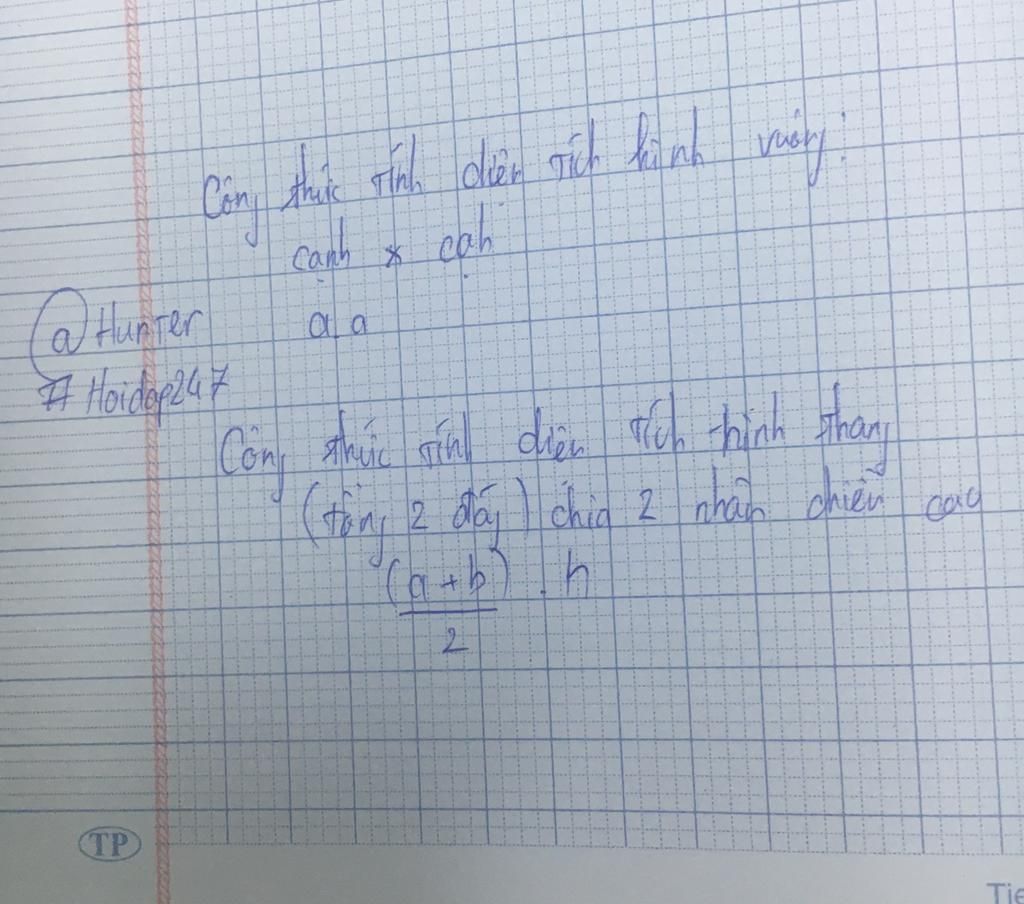 Công thức tính diện tích hình vuông:
cạnh x cạh
@Hunter
a.a
# Hoidap247
Công thức tính diện tích hình thang
(tổng 2 đáy) chia 2 nhân chiều cao
(a+b) . h
2
TP
Tie